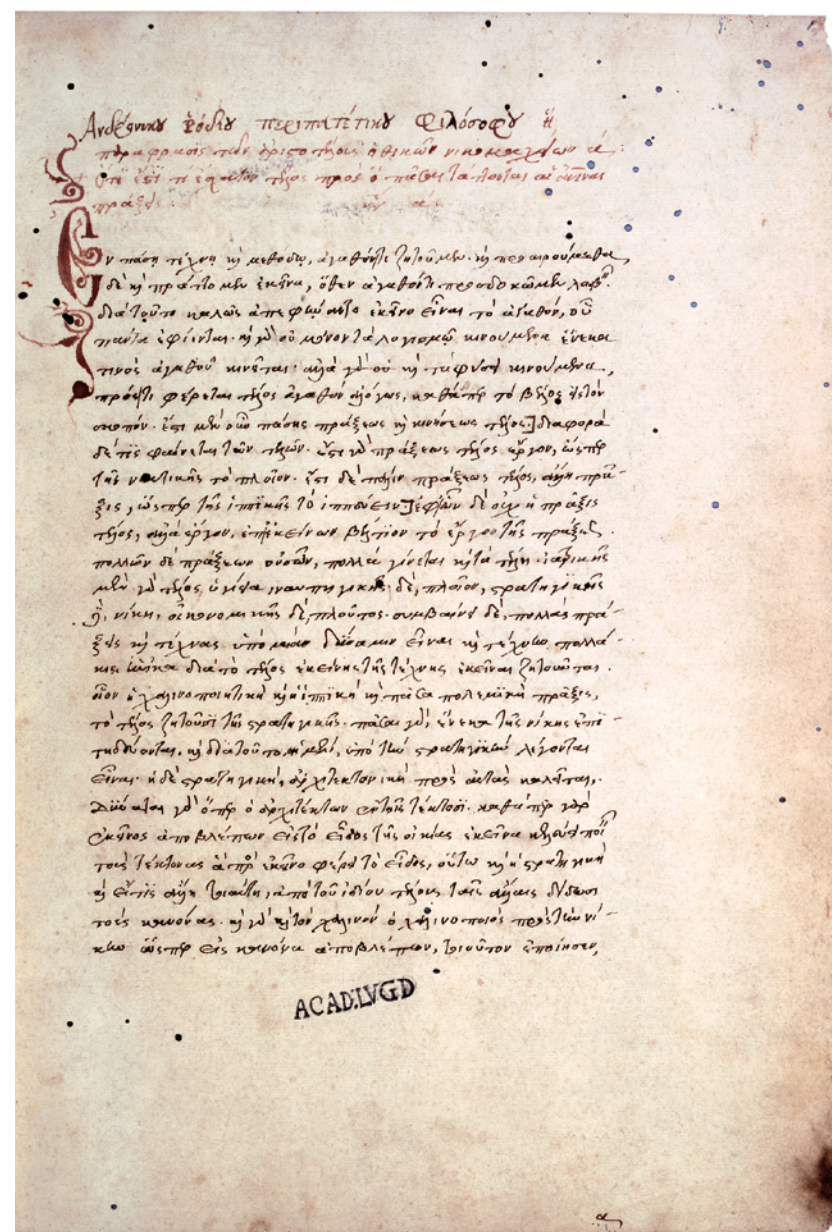 Ἀνδρονίκου Ῥοδίου περιπατητικοῦ φιλοσόφου ἡ
παράφρασις τῶν ἀριστοτέλους ἠθικῶν νικομαχείων
ὅτι ἔστι τι ἔσχατον τέλος πρὸς ὃ πᾶσαι
πράξεις
Ἐν πάσῃ τέχνῃ καὶ μεθόδῳ, ἀγαθόν τι ζητοῦμεν. καὶ προαιρούμεθα
δὲ καὶ πράττομεν ἐκεῖνα, ὅθεν ἀγαθόν τι προσδοκῶμεν λαβεῖν.
διὰ τοῦτο καλῶς ἀπεφήναντο ἐκεῖνο εἶναι τὸ ἀγαθὸν, οὗ
πάντα ἐφίενται. καὶ γὰρ οὐ μόνον τὰ λογισμῷ κινούμενα ἕνεκα
τινὸς ἀγαθοῦ κινεῖται. ἀλλὰ γὰρ οὖ καὶ τὰ φύσει κινούμενα,
πρός τι φέρεται τέλος ἀγαθὸν ἀλόγως, καθάπερ τὸ βέλος ἐπὶ τὸν
σκοπόν. ἔστι μὲν οὖν πάσης πράξεως καὶ κινήσεως τέλος. διαφορὰ
δέ τις φαίνεται τῶν τελῶν. ἔστι γὰρ πράξεως τέλος ἔργον, ὥσπερ
τῆς ναυτικῆς τὸ πλοῖον. ἔστι δὲ πάλιν πράξεως τέλος, ἄλλη πρᾶ-
ξις, ὥσπερ τῆς ἱππικῆς τὸ ἱππεύειν. ἐφ' ὧν δὲ οὐχ ἡ πρᾶξις
τέλος, ἀλλὰ ἔργον, ἐπ' ἐκείνων βέλτιον τὸ ἔργον τῆς πράξεως.
πολλῶν δὲ πράξεων οὐσῶν, πολλὰ γίνεται καὶ τὰ τέλη. ἰατρικῆς
μὲν γὰρ τέλος ὑγίεια, ναυπηγικῆς δὲ, πλοῖον, στρατηγικῆς
δὲ, νίκη, οἰκονομικῆς δὲ, πλοῦτος. συμβαίνει δὲ, πολλὰς πρά-
ξεις καὶ τέχνας ὑπὸ μίαν δύναμιν εἶναι καὶ τέχνην πολλά-
κις διὰ τὸ τέλος ἐκείνης τῆς τέχνης ἐκεῖναι ζητοῦνται.
οἷον ἡ χαλινοποιητικὴ καὶ ἡ ἱππικὴ καὶ πᾶσα πολεμικὴ πρᾶξις,
τὸ τέλος ζητοῦσι τῆς στρατηγικῆς. πᾶσαι γὰρ, ἕνεκα τῆς νίκης ἐπι-
τηδεύονται. καὶ διὰ τοῦτο ὑπὸ τὴν στρατηγικὴν λέγονται
εἶναι. ἡ δὲ στρατηγικὴ, ἀρχιτεκτονικὴ πρὸς αὐτὰς καλεῖται,
δύναται γὰρ ὅπερ ὁ ἀρχιτέκτων ἐν τοῖς τέκτοσι. καθάπερ γὰρ
ἐκεῖνος ἀποβλέπων εἰς τὸ εἶδος τῆς οἰκίας ἐκεῖνα κελεύει ποιεῖν
τοὺς τέκτονας ἅπερ ἐκεῖνο φέρει τὸ εἶδος, οὕτω καὶ ἡ στρατηγικὴ
καὶ εἴ τις ἄλλη τοιαύτη, ἀπὸ τοῦ ἰδίου τέλους ταῖς ἄλλαις δίδωσι
τοὺς κανόνας. καὶ γὰρ καὶ τὸν χαλινὸν ὁ χαλινοποιὸς πρὸς τὴν νί-
κην ὥσπερ εἰς κανόνα ἀποβλέπων, τοιοῦτον ἐποίησεν,
ACAD.LVGD
α